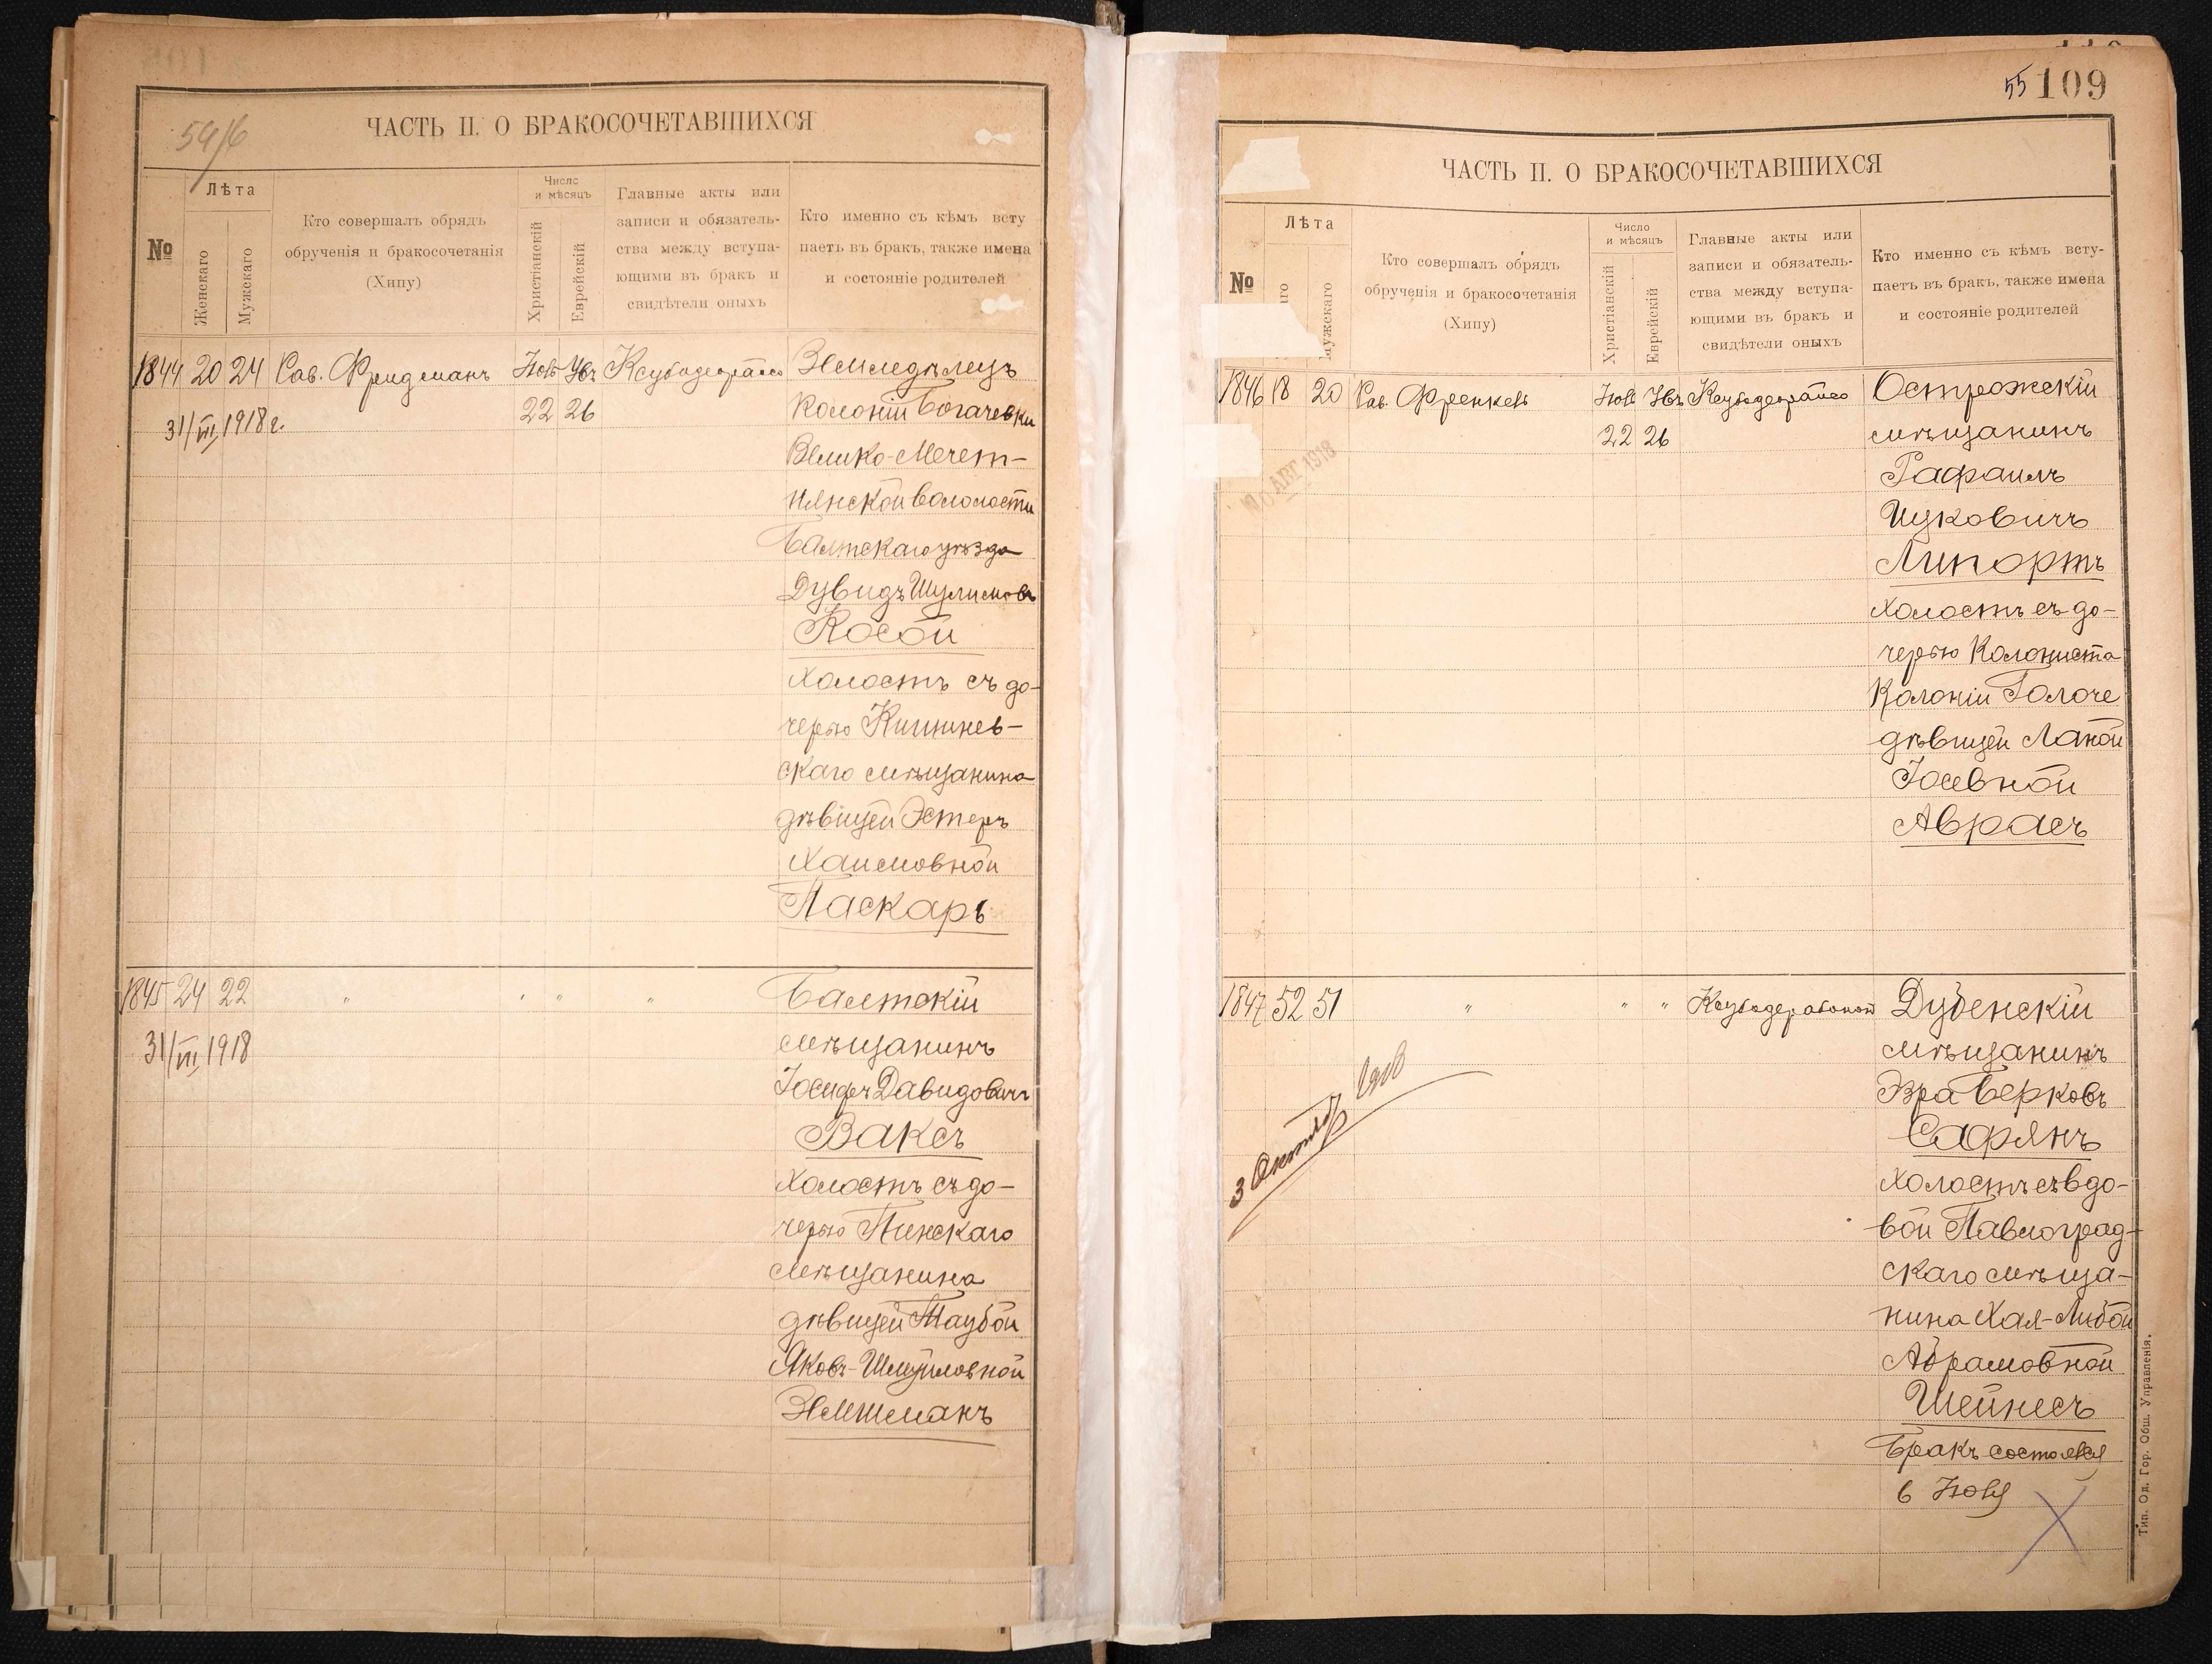 59/6
ЧАСТЬ II. О БРАКОСОЧЕТАВШИХСЯ
№
Лѣта
Женскаго
Мужскаго
Кто совершалъ обрядъ
обрученія и бракосочетанія
(Хипу)
Число
и мѣсяцъ
Христіанскій
Еврейскій
Главные акты или
записи и обязатель-
ства между вступа-
ющими въ бракъ и
свидѣтели оныхъ
Кто именно съ кѣмъ всту
паетъ въ бракъ, также имена
и состояніе родителей
1844 20 24 Рав. Фридманъ
22 26
31/III 1918 г.
Земледѣлецъ
Колоніи Богачевки
Велико-Мечет-
нянской
Балтскаго уѣзда
Дувидъ Шулимовъ
Косой
холостъ съ до-
черью Кишинев-
скаго мѣщанина
дѣвицей Эстеръ
Хаимовной
Паскарь
1845 24 22 " " " "
31/III 1918
Балтскій
мѣщанинъ
Іосифъ Давидовичъ
Ваксъ
холостъ съ до-
черью Пинскаго
мѣщанина
дѣвицей Таубой
Яковъ-Шмуйловной
55 109
ЧАСТЬ II. О БРАКОСОЧЕТАВШИХСЯ
№
Лѣта
аго
Мужскаго
Кто совершалъ обрядъ
обрученія и бракосочетанія
(Хипу)
Число
и мѣсяцъ
Христіанскій
Еврейскій
Главные акты или
записи и обязатель-
ства между вступа-
ющими въ бракъ и
свидѣтели оныхъ
Кто именно съ кѣмъ всту-
паетъ въ бракъ, также имена
и состояніе родителей
1846 18 20 Рав. Френкель
22 26
АВГ 1918
Острожскій
мѣщанинъ
Рафаилъ
Ицковичъ
Липортъ
холостъ съ до-
черью Колониста
Колоніи
дѣвицей
Іосевной
Аврасъ
1847 52 51 " " "
3 Октября 1918
Дубенскій
мѣщанинъ
Эзра Берковъ
Сафянъ
холостъ съ вдо-
вой Павлоград-
скаго мѣща-
нина Хая-Либой
Абрамовной
Шейнесъ
Бракъ состоялся
в
Тип. Од. Гор. Общ. Управленія.